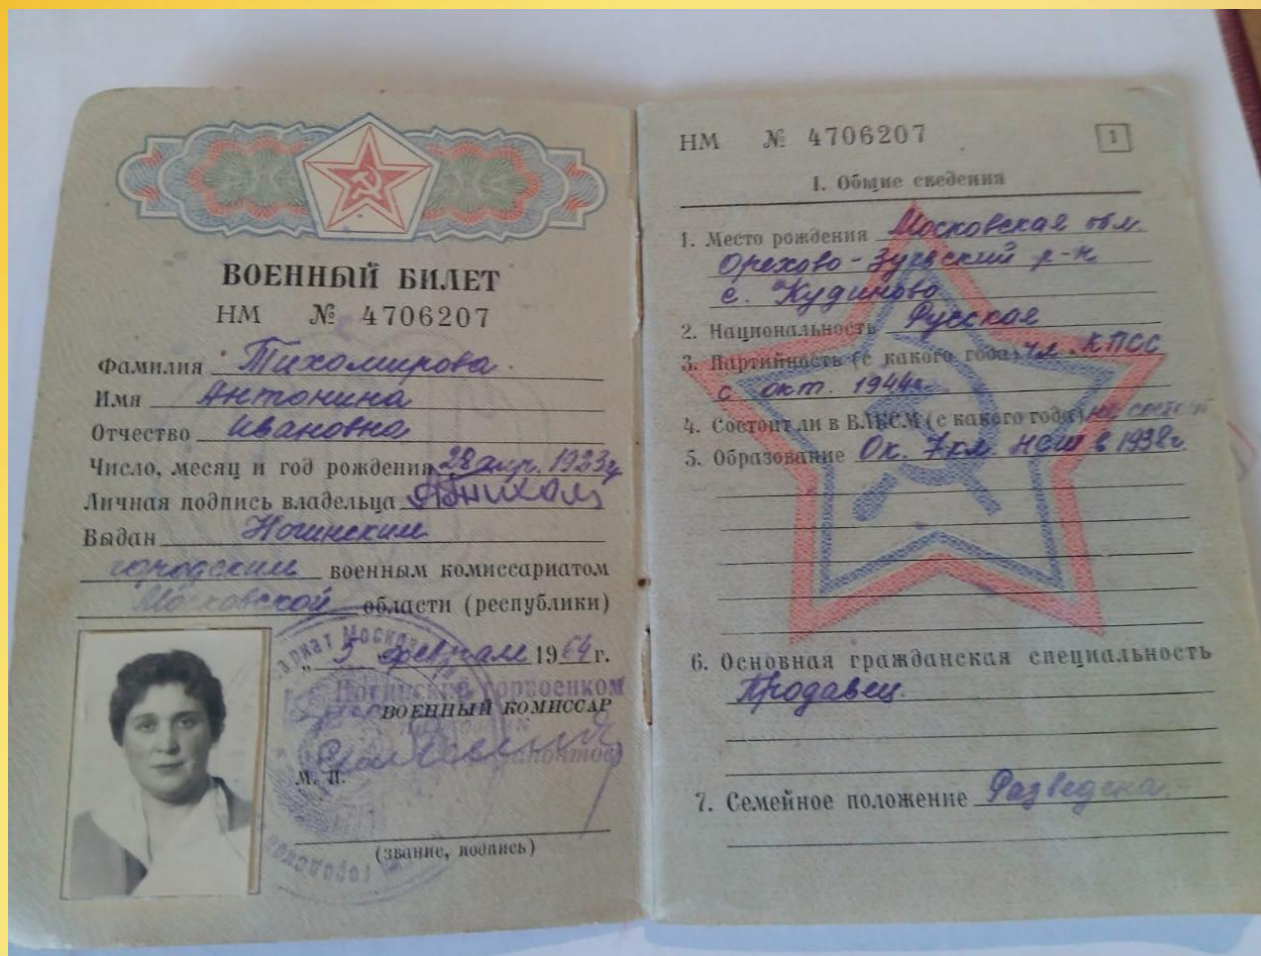 ВОЕННЫЙ БИЛЕТ
НМ № 4706207
Фамилия Тихомирова
Имя Антонина
Отчество Ивановна
Число, месяц и год рождения 28 апр. 1923г
Личная подпись владельца
Выдан Ногинским
городским военным комиссариатом
Московской области (республики)
„ 5 февраля 1964 г.
Ногинский горвоенком
ВОЕННЫЙ КОМИССАР
М. П.
(звание, подпись)
НМ № 4706207
1
I. Общие сведения
1. Место рождения Московская обл.
Орехово-Зуевский р-н
с. Кудиново
2. Национальность Русская
3. Партийность (с какого года) чл. КПСС
с окт. 1944г.
4. Состоит ли в ВЛКСМ (с какого года) не состоит
5. Образование Ок. 7 кл. НСШ в 1938г.
6. Основная гражданская специальность
Продавец
7. Семейное положение Разведена.